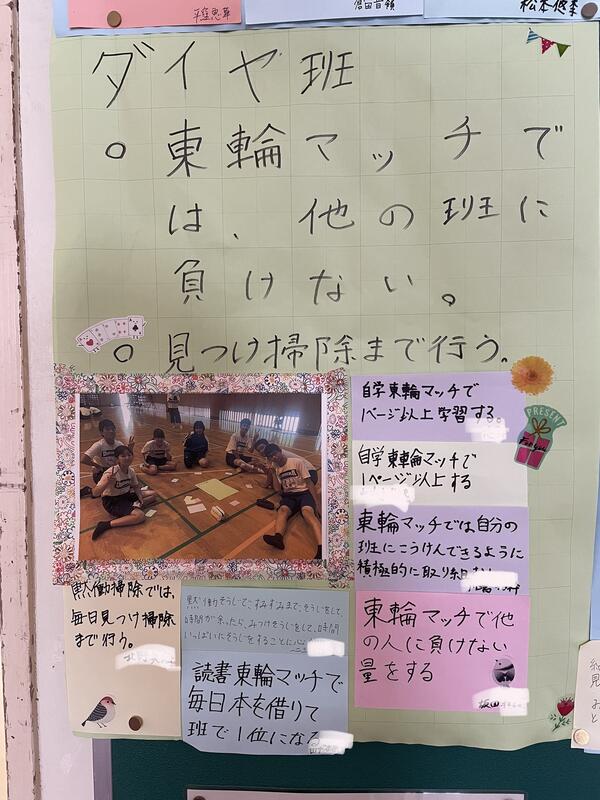 松本悠季
ダイヤ班
○ 東輪マッチで
は、他の班に
負けない。
○ 見つけ掃除まで行う。
自学東輪マッチで
1ページ以上学習する。
PRESENT
For you
自学東輪マッチで
1ページ以上する
東輪マッチでは自分の
班にこうけんできるように
積極的に取り組
黙働掃除では、
毎日見つけ掃除
まで行う。
黙働そうじで、すみずみまで、そうじをして、
時間が余ったら、みつけそうじをして、時間
いっぱいにそうじをすること
東輪マッチで他
の人に負けない
量をする
読書東輪マッチで
毎日本を借りて
班で1位になる